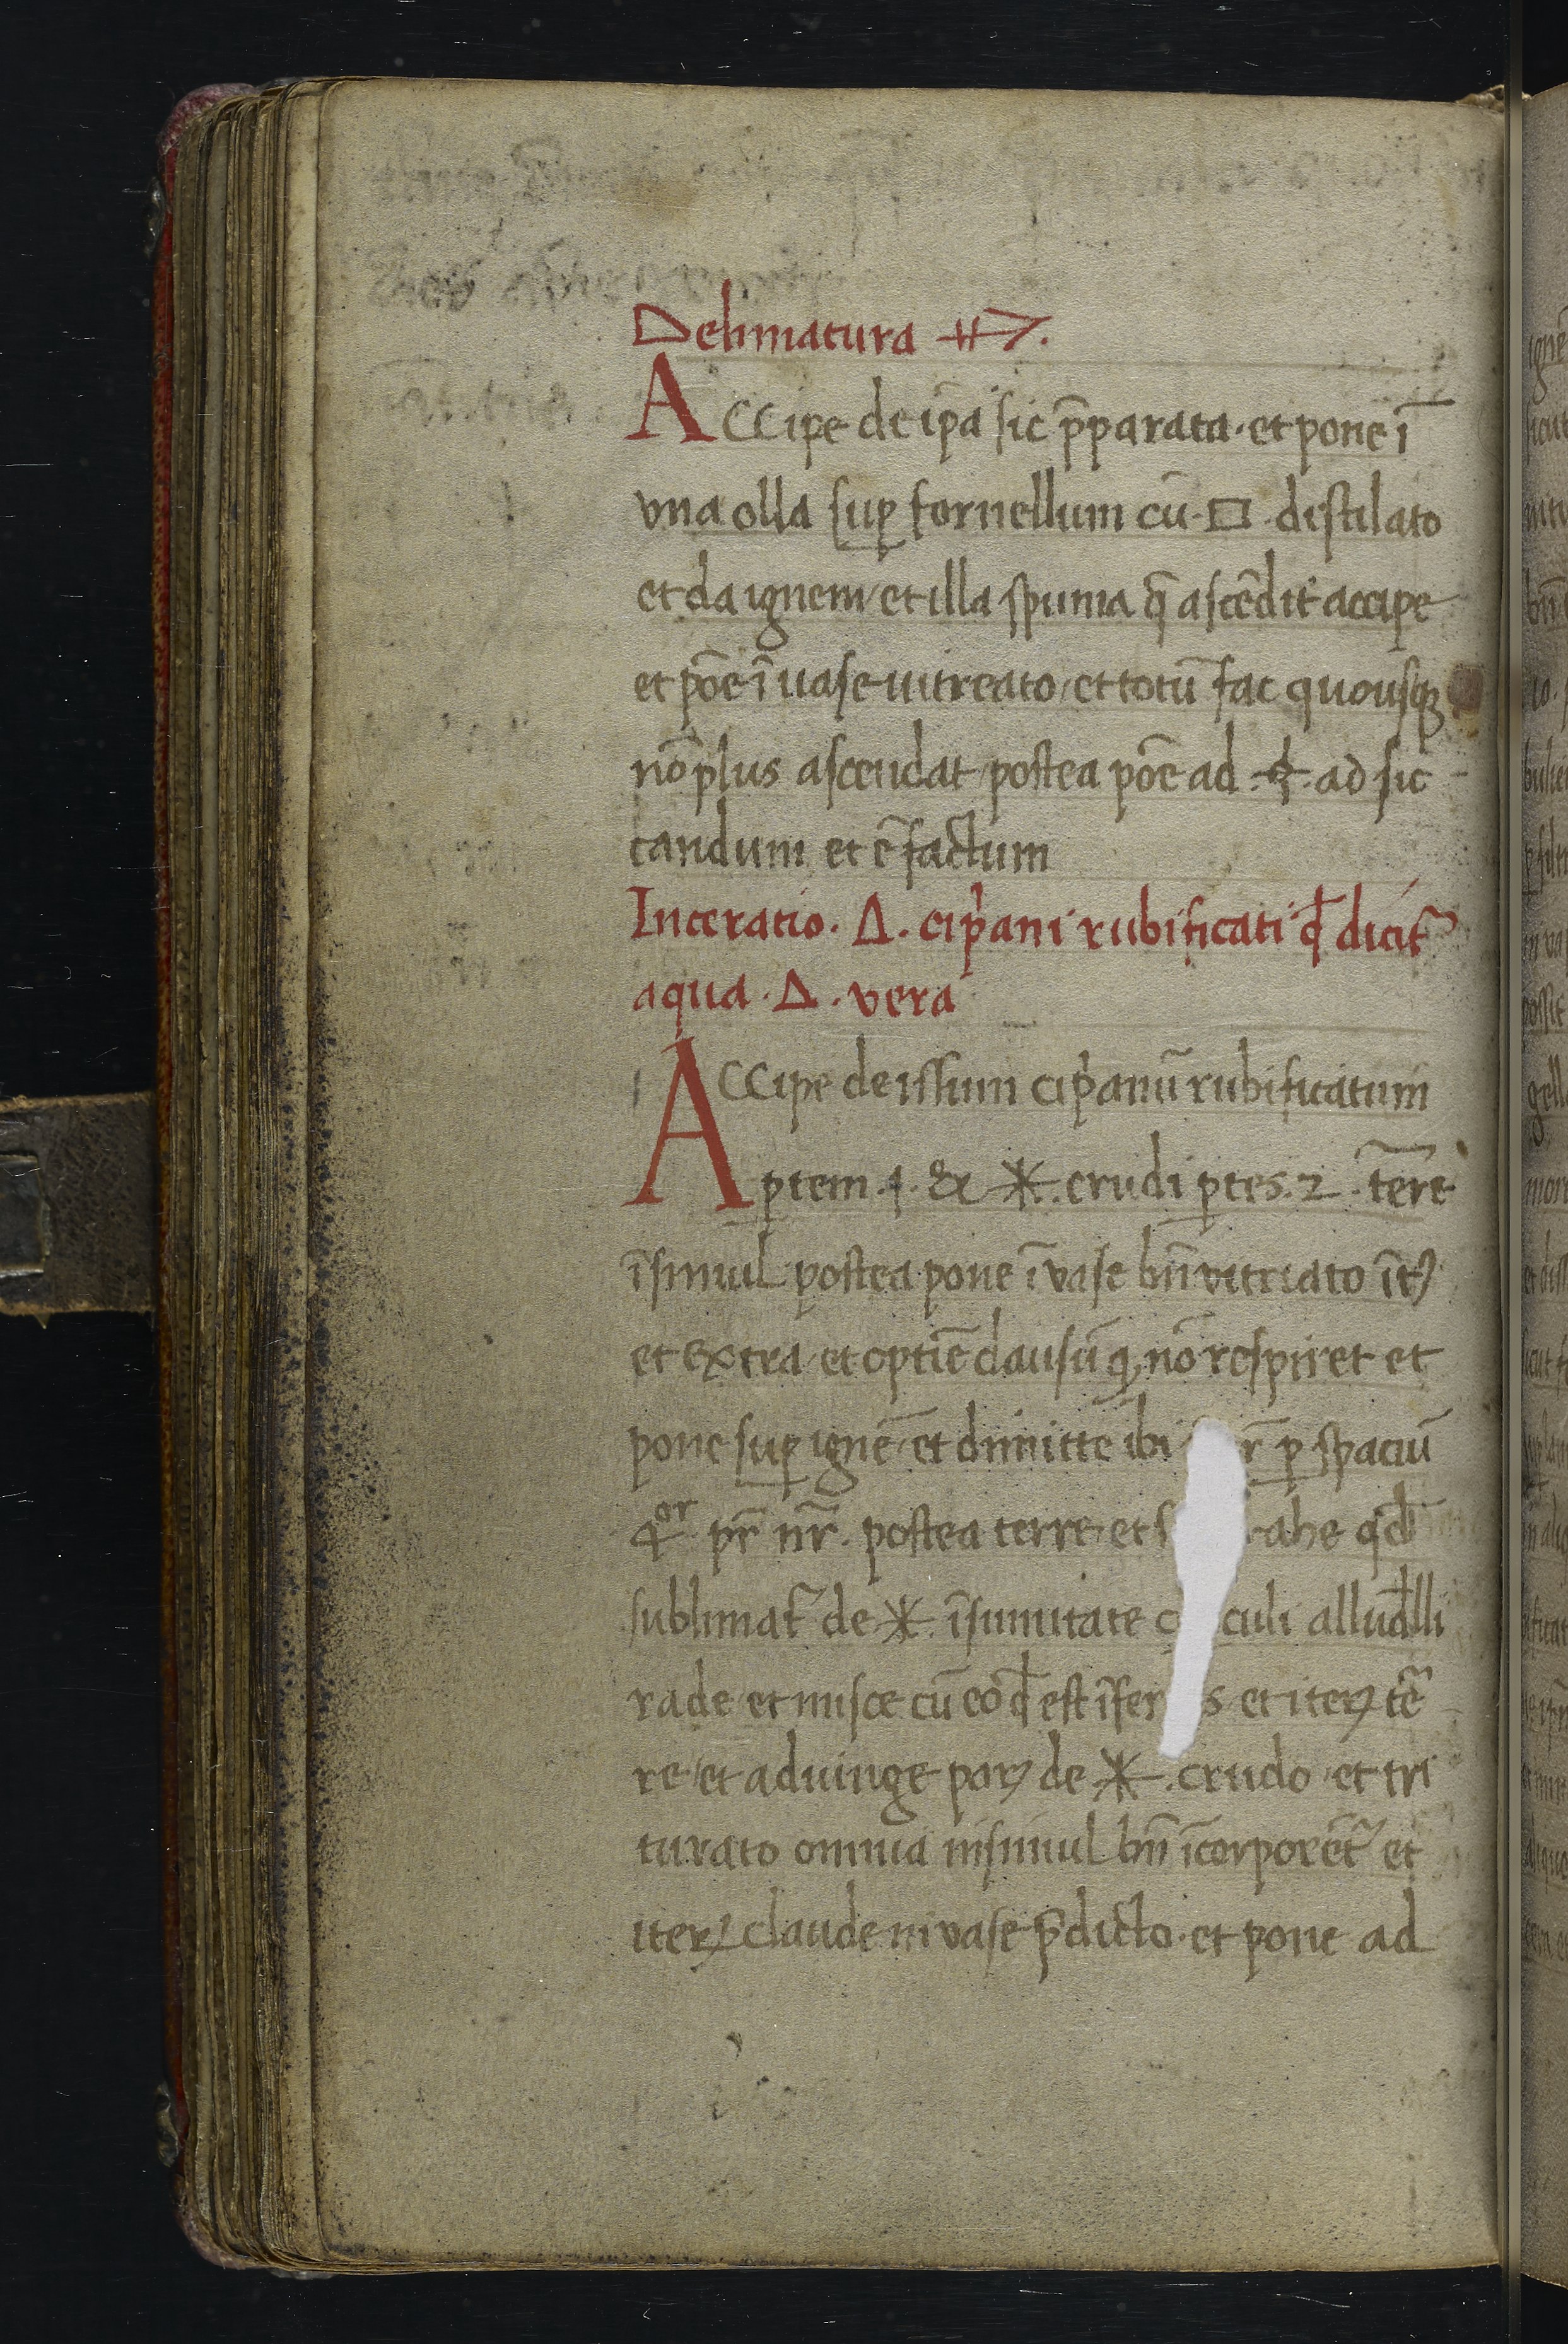 Delimatura
Accipe de ip̄a sic p̄parata · et pone ī
vna olla sup̱ fornellum cū · □ · distilato
et da ignem / et illa spuma q̄ ascēdit accipe
et pōe ī uase uitreato / et totū fac quousqꝫ
nō plus ascendat / postea pōe ad · ad sic
candum et ē factum
Inceratio · Δ · cip̍ani rubificati qđ dicit᷑
aqua · Δ · vera
Accipe de issum cip̍anū rubificatum
ꝑtem · 1 · & ⚹ · crudi ꝑtes · 2 · tēre
īsimul postea pone ī vase bn̄ vitriato īt
et extra / et optīe clausū nō respiret et
pone sup̱ ignē / et dimitte ibi r̄ ꝑ spaciū
4or · pr̄ nr̄ · postea terre / et s rahe qđ
sublimat᷑ de ⚹ · ī sumitate culi alludlli
rade / et misce cū eo qđ est īfer s et iteꝝ tē
re / et aduinge paꝝ de ⚹ · crudo / et tri
turato omnia insimul bn̄ īcorporēt᷑ et
iteꝝ claude ni vase p̄dicto · et pone ad